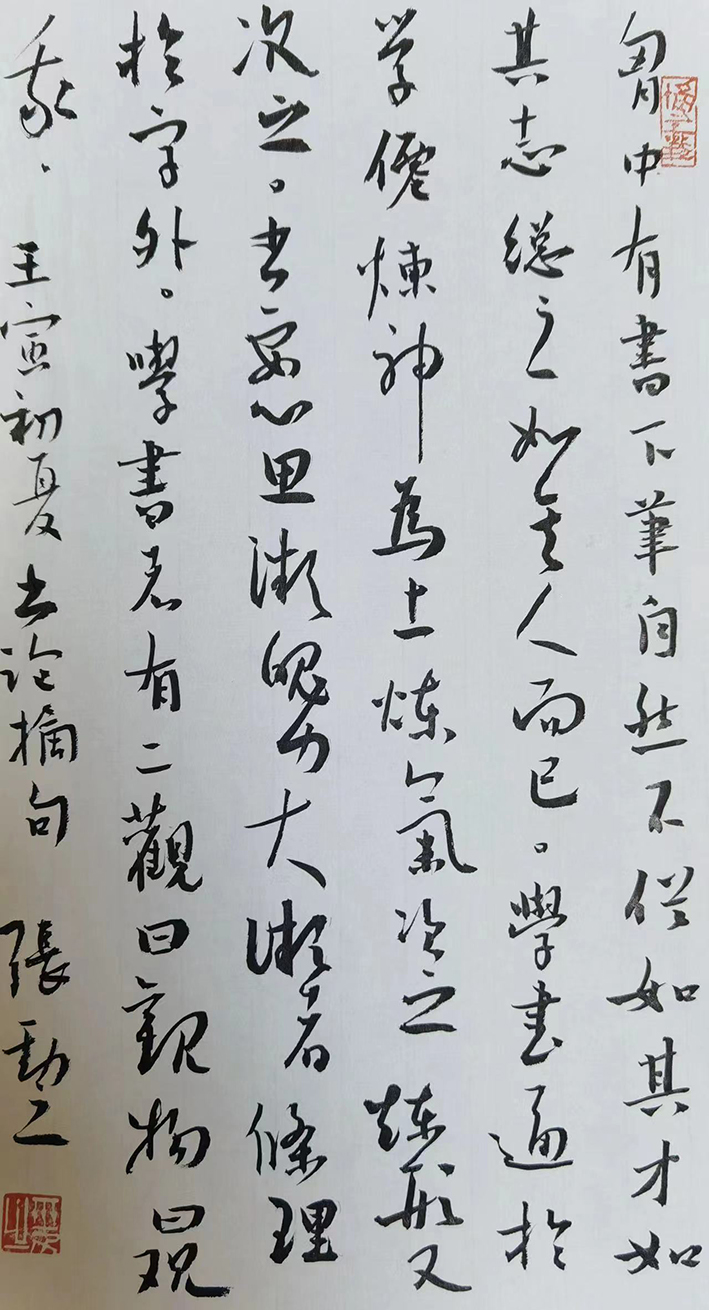 胷中有書下筆自然不俗如其才如
其志總之如其人而已。學書通於
学僊煉神為上煉氣次之煉形又
次之。书要心思微魄力大微者條理
於字外。學書者有二觀曰觀物曰观
我、壬寅初夏书论摘句 張